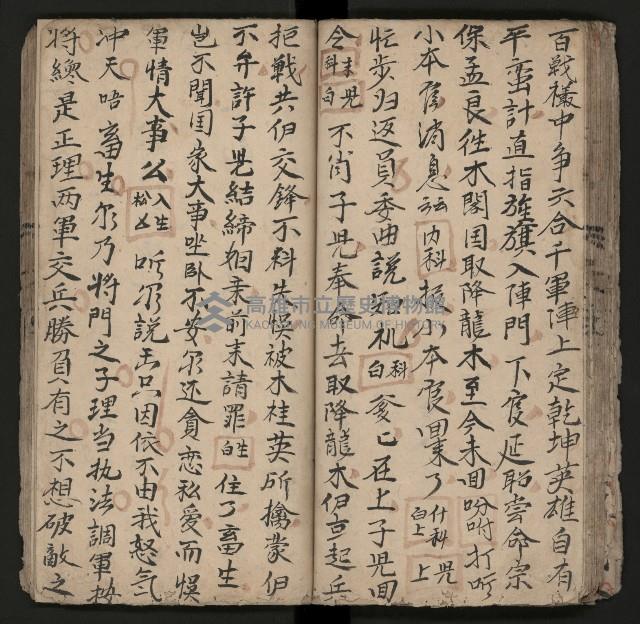 百戰襪中爭六合千軍陣上定乾坤英雄自有
平蛮計直指旌旗入陣門下官延昭尝命宗
保孟良徃木閣囯取降龍木至今未回吩咐打听
小本官消息 内科 本官回来了 什科白上 兕上
忙步归返員委曲說 机 科白 爹〻在上子兕回
令 末兕科白 不肖子兕奉 去取降龍木伊 起兵
拒戰共伊交鋒不料失悞被木桂英所擒蒙伊
不弃許子兕結締相来前来請罪 生白 住了畜生
豈不聞囯家大事坐卧不安尔还貪恋私爱而悞
軍情大事么 入生 听尔說 只因依不由我怒气
冲天唔畜生尔乃將門之子理当执法調軍
將總是正理两軍交兵勝負有之不想破敵之
高雄市立歷史博物館
KAOHSIUNG MUSEUM OF HISTORY